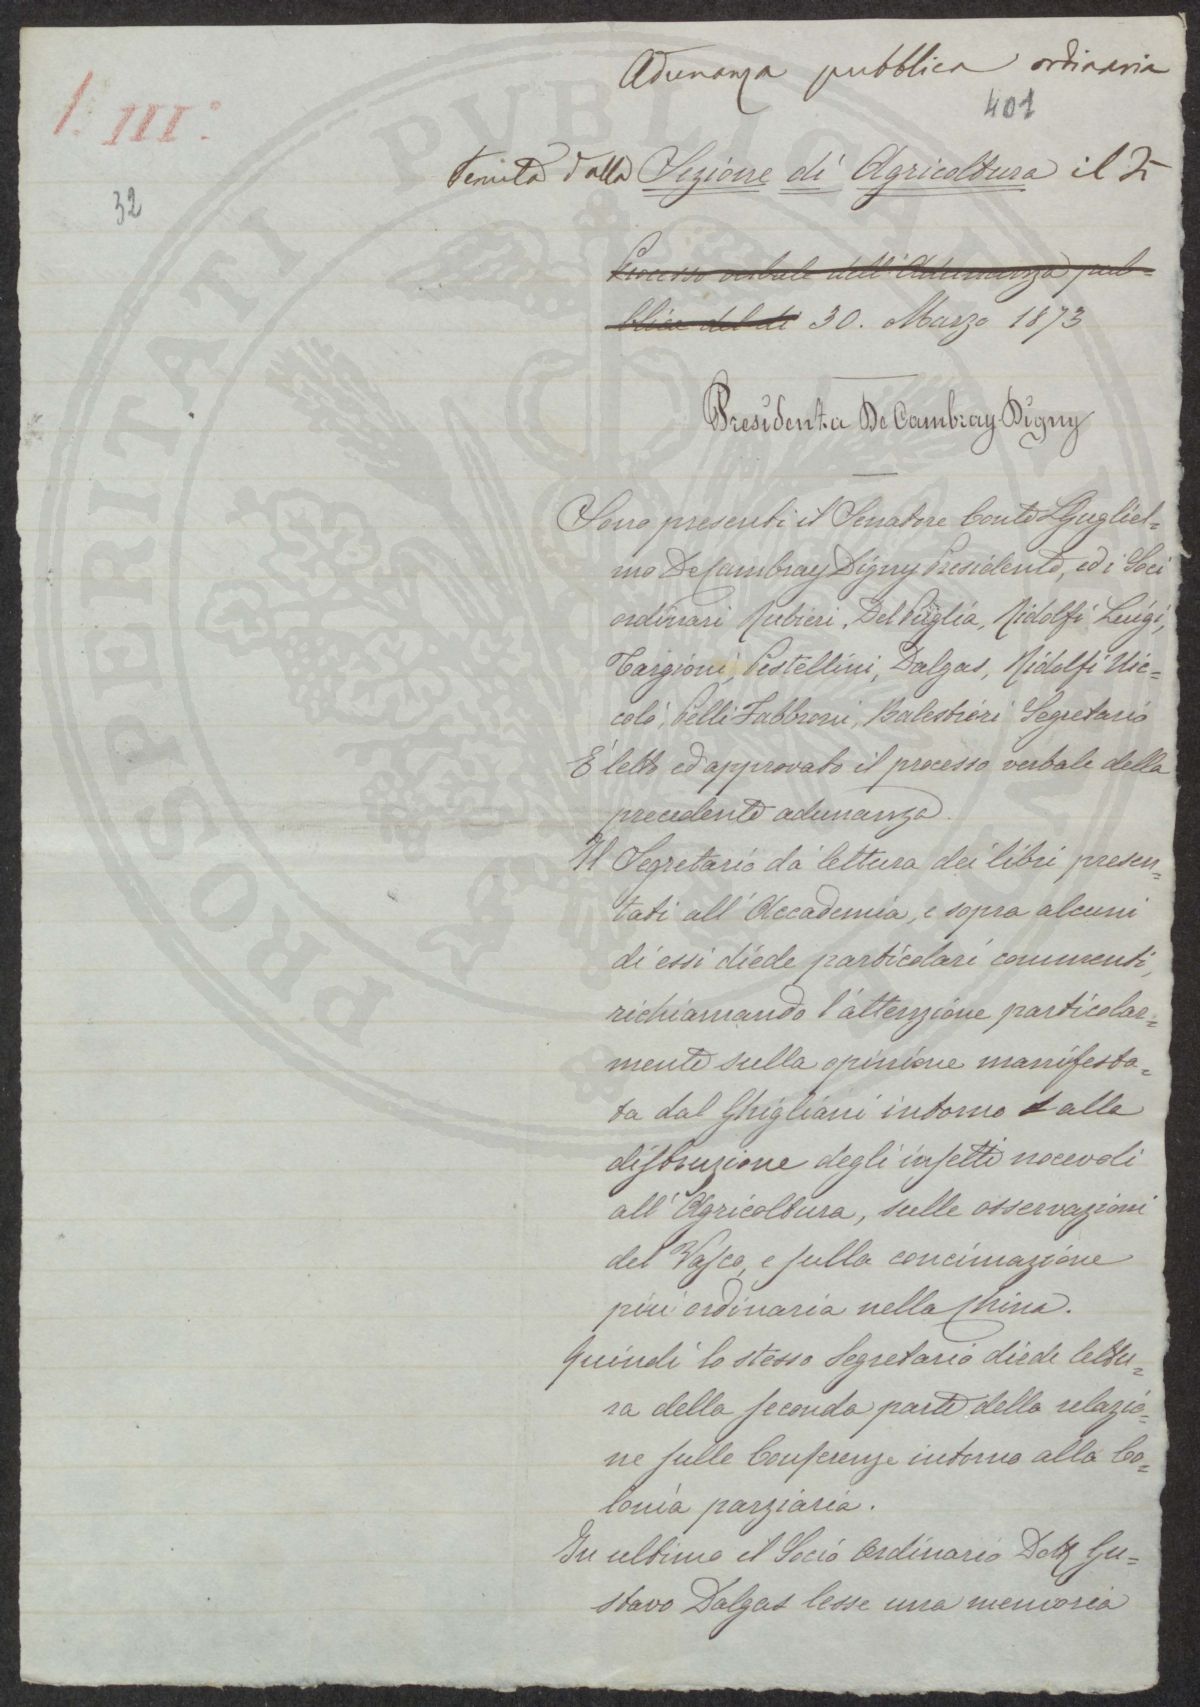 Adunanza pubblica ordinaria
401
I. III.°
tenuta dalla Sezione di Agricoltura il dì
32
Processo verbale dell'Adunanza pub=
blica del dì 30. Marzo 1873
Presidenza De Cambray Digny
Sono presenti il Senatore Conte L. Gugliel=
mo De Cambray Digny Presidente, ed i Soci
ordinari Rubieri, Del Puglia, Ridolfi Luigi,
Targioni, Pestellini, Dalgas, Ridolfi Nic=
colò, Pelli Fabbroni, Balestrieri Segretario
È letto ed approvato il processo verbale della
precedente adunanza.
Il Segretario dà lettura dei libri presen=
tati all'Accademia, e sopra alcuni
di essi diede particolari commenti,
richiamando l'attenzione particolar=
mente sulla opinione manifesta=
ta dal Ghigliani intorno alla
distruzione degli insetti nocevoli
all'Agricoltura, sulle osservazioni
del Vasco, e sulla concimazione
più ordinaria nella China.
Quindi lo stesso Segretario diede lettu=
ra della seconda parte della relazio=
ne sulle Conferenze intorno alla Co=
lonia parziaria.
In ultimo il Socio Ordinario Dott. Gu=
stavo Dalgas lesse una memoria
PROSPERITATI PVBLICAE